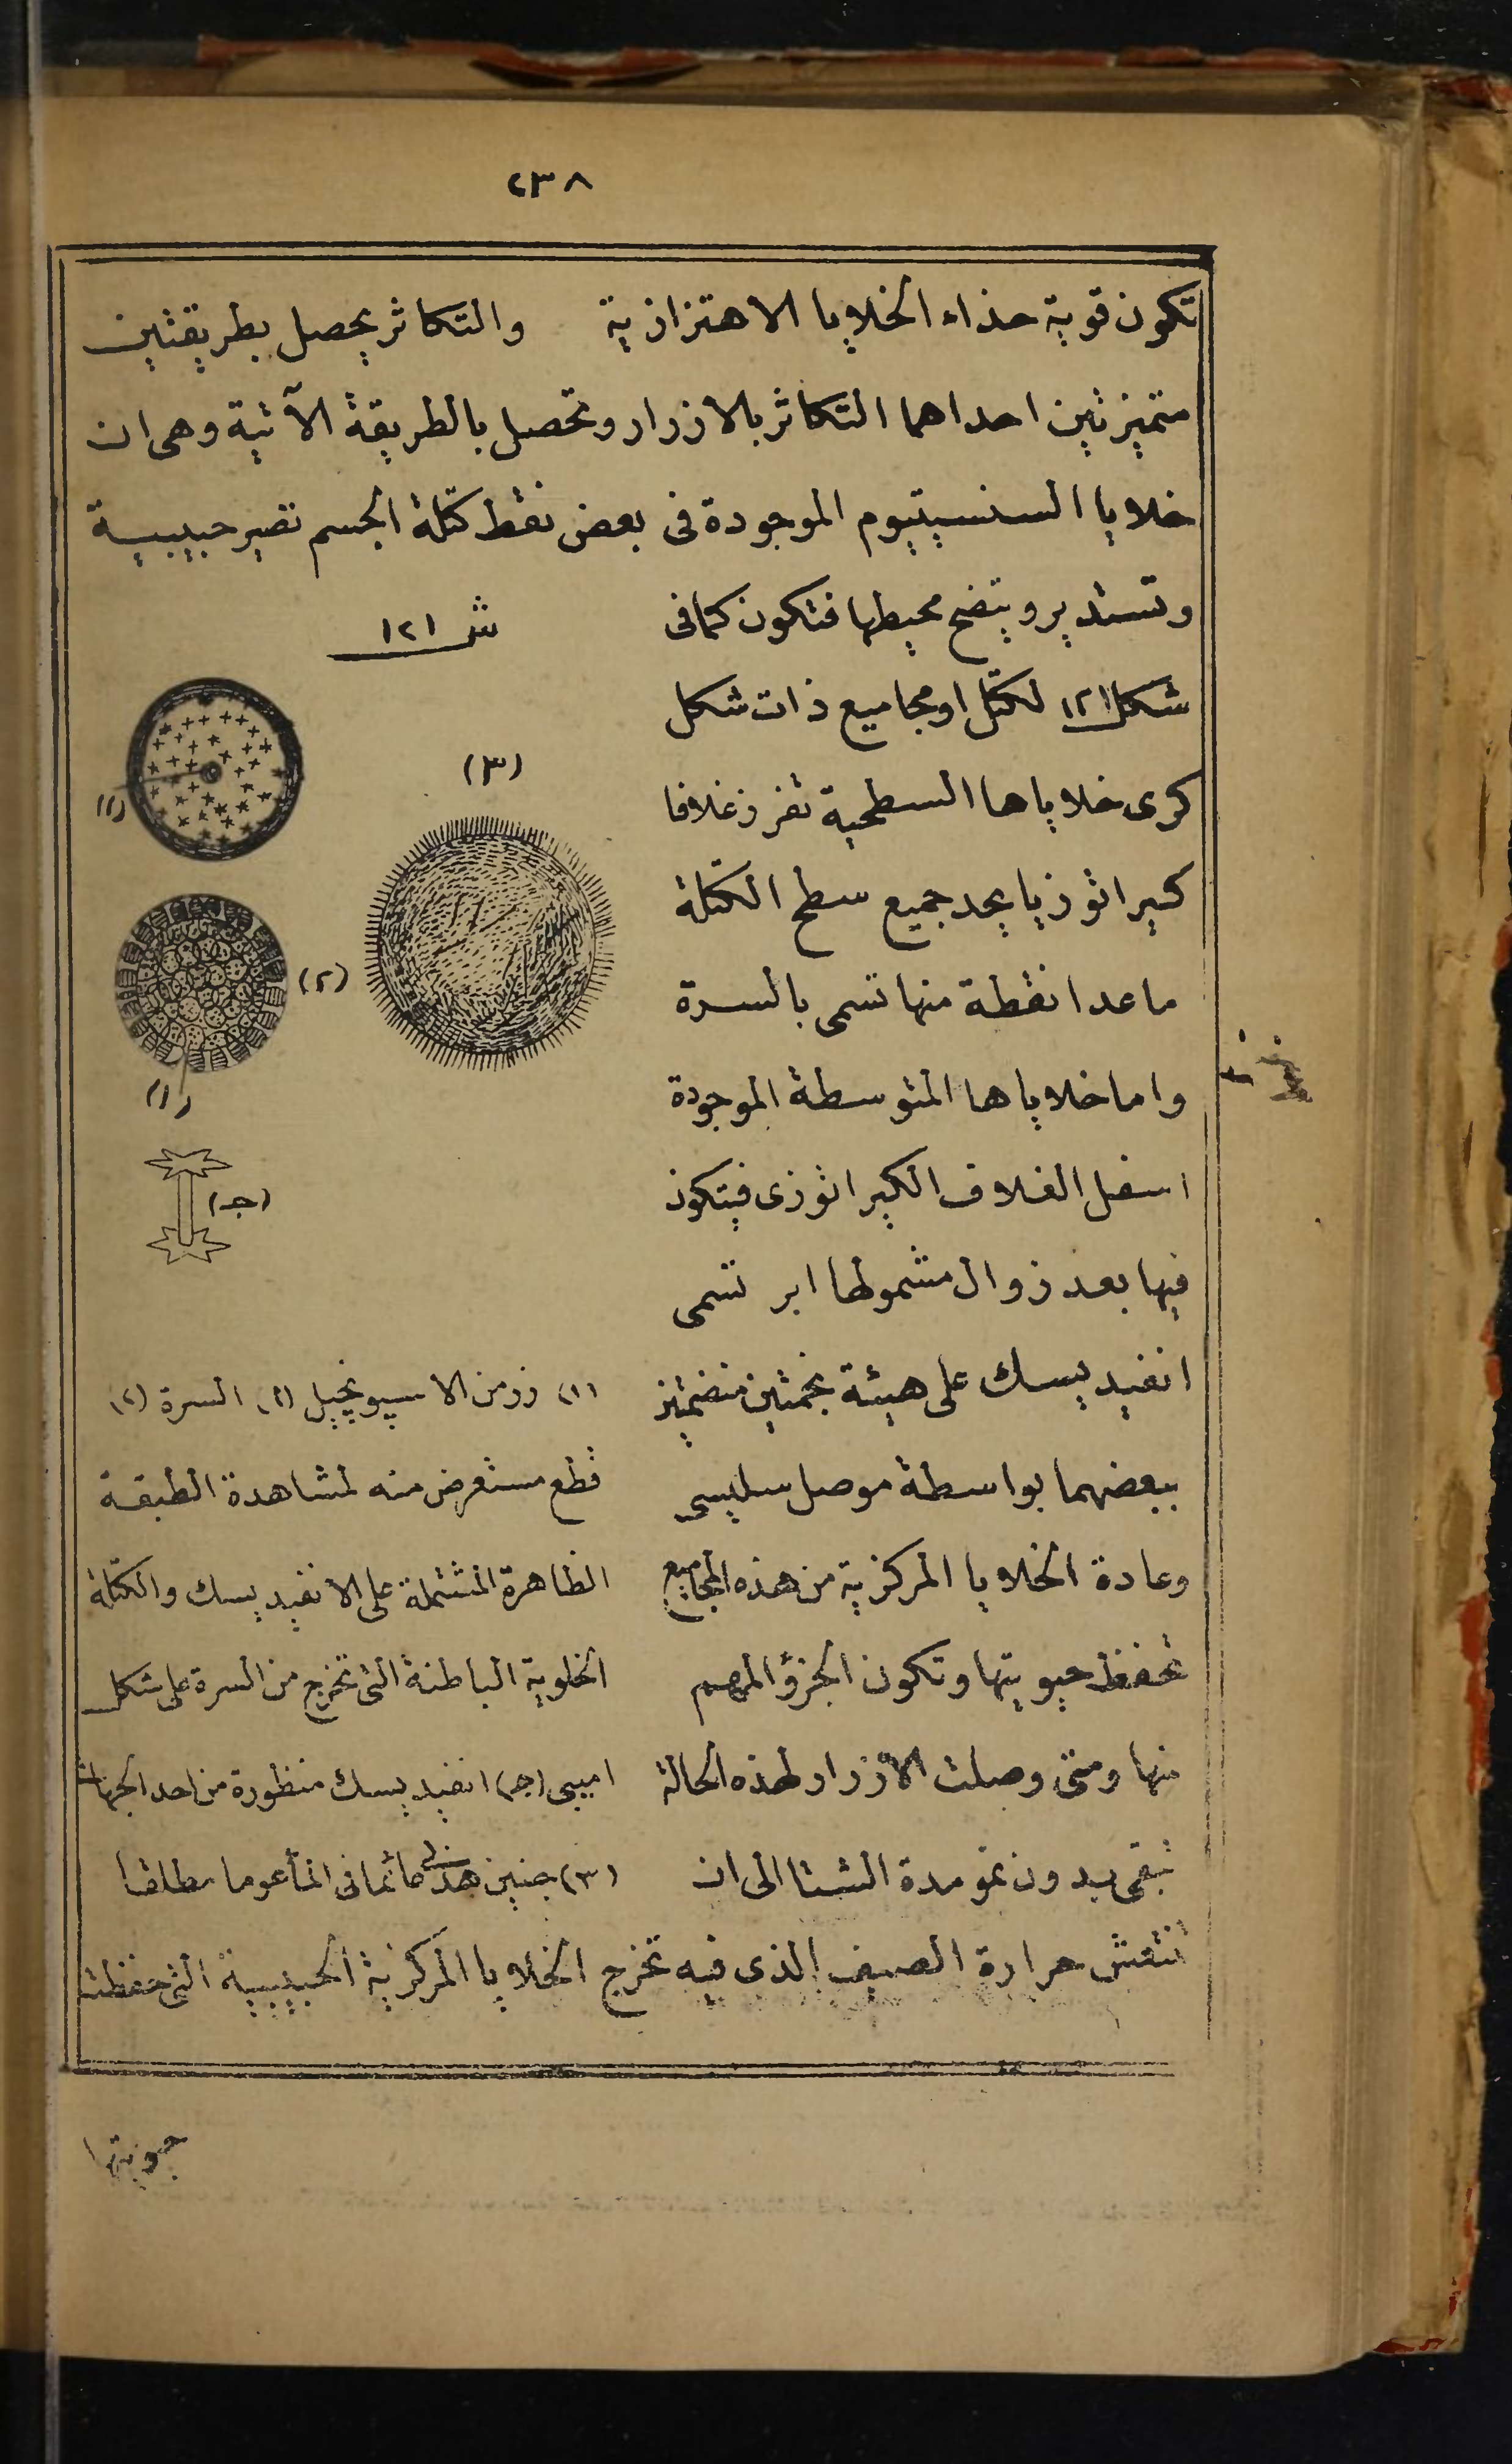 ٢٣٨
تكون قوية حذاء الخلايا الاهتزازية والتكاثر يحصل بطريقتين
متميزتين احداهما التكاثر بالازرار وتحصل بالطريقة الآتية وهى ان
خلايا السنسيتيوم الموجودة فى بعض نقط كتلة الجسم تصير حبيبية
وتستدير ويتضح محيطها فتكون كمافى
شكل ١٢١ لكتل اومجاميع ذات شكل
كرى خلاياها السطحية تفرز غلافا
كيراتوزيا يحد جميع سطح الكتلة
ماعدا نقطة منها تسمى بالسرة
واما خلاياها المتوسطة الموجودة
اسفل الغلاف الكيراتوزى فيتكون
فيها بعد زوال مشمولها ابر تسمى
انفيديسك على هيئة نجمتين منضمتين
ببعضهما بواسطة موصل سليسى
وعادة الخلايا المركزية من هذه المجاميع
تحفظ حيويتها وتكون الجزؤ المهم
منها ومتى وصلت الازرار لهذه الحالة
تبقى بدون نمو مدة الشتا الى ان
ش ١٢١
(٣)
(١)
(٢)
(١)
(جـ)
(١) زرمن الاسپونجيل (١) السرة (٢)
قطع مستعرض منه لمشاهدة الطبقة
الظاهرة المشتملة على الانفيديسك والكتلة
الخلوية الباطنة التى تخرج من السرة على شكل
اميبى (جـ) انفيديسك منظورة من احد الجهات
(٣) جنين هذا عائما فى الماء عوما مطلقا
تنتعش حرارة الصيف الذى فيه تخرج الخلايا المركزية الحبيبية التى حفظت
حيويتها